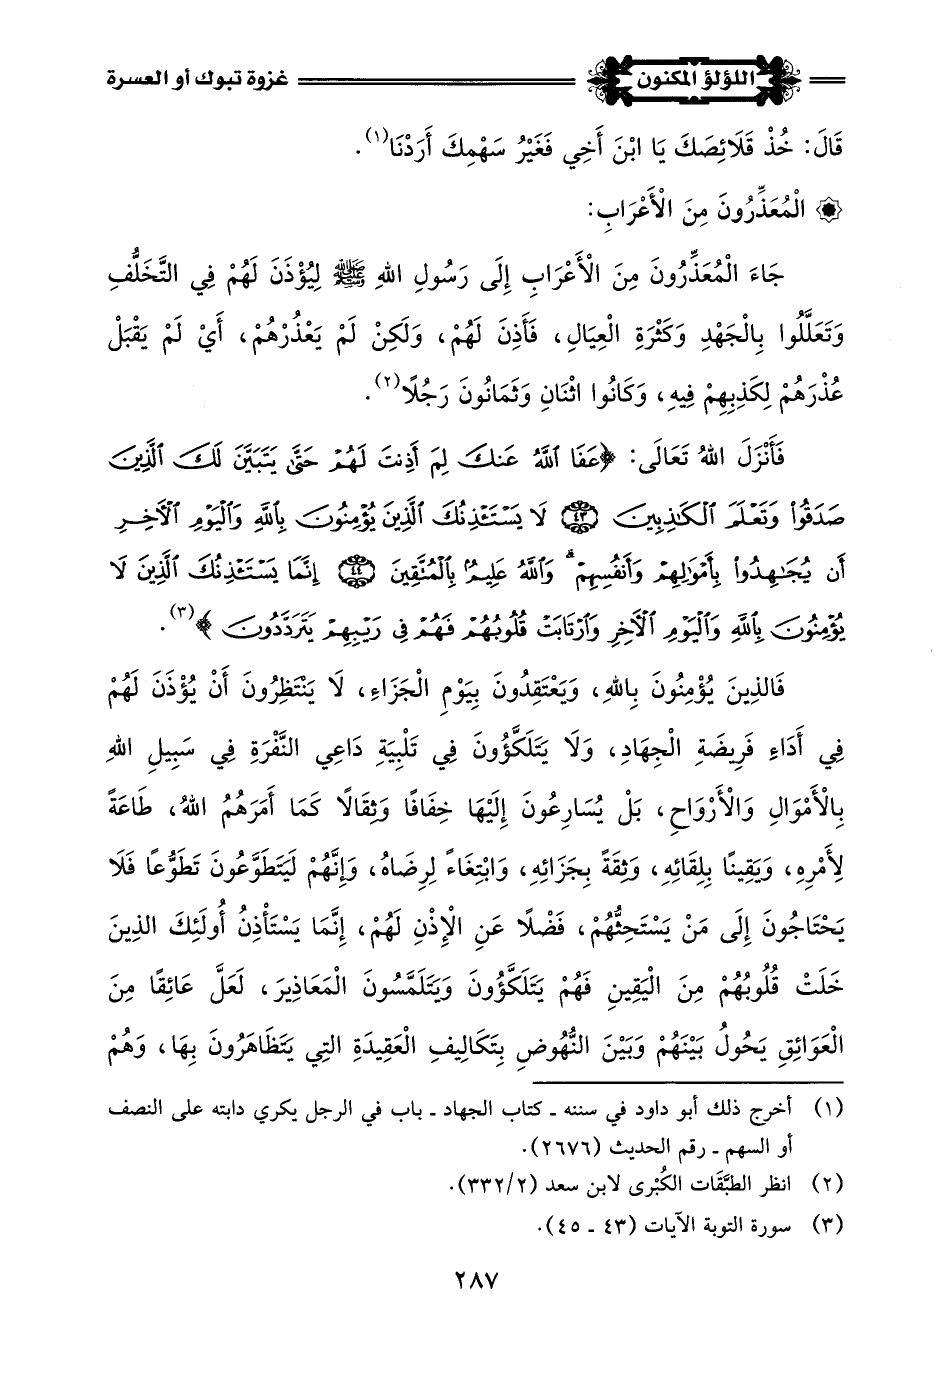 اللؤلؤ المكنون غزوة تبوك أو العسرة
قَالَ: خُذْ قَلَائِصَكَ يَا ابْنَ أَخِي فَغَيْرُ سَهْمِكَ أَرَدْنَا(١).
الْمُعَذِّرُونَ مِنَ الْأَعْرَابِ:
جَاءَ الْمُعَذِّرُونَ مِنَ الْأَعْرَابِ إِلَى رَسُولِ اللهِ ﷺ لِيُؤْذَنَ لَهُمْ فِي التَّخَلُّفِ
وَتَعَلَّلُوا بِالْجَهْدِ وَكَثْرَةِ الْعِيَالِ، فَأَذِنَ لَهُمْ، وَلَكِنْ لَمْ يَعْذُرْهُمْ، أَيْ لَمْ يَقْبَلْ
عُذْرَهُمْ لِكَذِبِهِمْ فِيهِ، وَكَانُوا اثْنَانِ وَثَمَانُونَ رَجُلًا(٢).
فَأَنْزَلَ اللهُ تَعَالَى: ﴿عَفَا ٱللَّهُ عَنكَ لِمَ أَذِنتَ لَهُمْ حَتَّىٰ يَتَبَيَّنَ لَكَ ٱلَّذِينَ
صَدَقُواْ وَتَعْلَمَ ٱلْكَٰذِبِينَ ٤٣ لَا يَسْتَـْٔذِنُكَ ٱلَّذِينَ يُؤْمِنُونَ بِٱللَّهِ وَٱلْيَوْمِ ٱلْـَٔاخِرِ
أَن يُجَٰهِدُواْ بِأَمْوَٰلِهِمْ وَأَنفُسِهِمْ ۗ وَٱللَّهُ عَلِيمٌۢ بِٱلْمُتَّقِينَ ٤٤ إِنَّمَا يَسْتَـْٔذِنُكَ ٱلَّذِينَ لَا
يُؤْمِنُونَ بِٱللَّهِ وَٱلْيَوْمِ ٱلْـَٔاخِرِ وَٱرْتَابَتْ قُلُوبُهُمْ فَهُمْ فِى رَيْبِهِمْ يَتَرَدَّدُونَ﴾(٣).
فَالذِينَ يُؤْمِنُونَ بِاللهِ، وَيَعْتَقِدُونَ بِيَوْمِ الْجَزَاءِ، لَا يَنْتَظِرُونَ أَنْ يُؤْذَنَ لَهُمْ
فِي أَدَاءِ فَرِيضَةِ الْجِهَادِ، وَلَا يَتَلَكَّؤُونَ فِي تَلْبِيَةِ دَاعِي النَّفْرَةِ فِي سَبِيلِ اللهِ
بِالْأَمْوَالِ وَالْأَرْوَاحِ، بَلْ يُسَارِعُونَ إِلَيْهَا خِفَافًا وَثِقَالًا كَمَا أَمَرَهُمُ اللهُ، طَاعَةً
لِأَمْرِهِ، وَيَقِينًا بِلِقَائِهِ، وَثِقَةً بِجَزَائِهِ، وَابْتِغَاءً لِرِضَاهُ، وَإِنَّهُمْ لَيَتَطَوَّعُونَ تَطَوُّعًا فَلَا
يَحْتَاجُونَ إِلَى مَنْ يَسْتَحِثُّهُمْ، فَضْلًا عَنِ الْإِذْنِ لَهُمْ، إِنَّمَا يَسْتَأْذِنُ أُولَئِكَ الذِينَ
خَلَتْ قُلُوبُهُمْ مِنَ الْيَقِينِ فَهُمْ يَتَلَكَّؤُونَ وَيَتَلَمَّسُونَ الْمَعَاذِيرَ، لَعَلَّ عَائِقًا مِنَ
الْعَوَائِقِ يَحُولُ بَيْنَهُمْ وَبَيْنَ النُّهُوضِ بِتَكَالِيفِ الْعَقِيدَةِ التِي يَتَظَاهَرُونَ بِهَا، وَهُمْ
(١) أخرج ذلك أبو داود في سننه ـ كتاب الجهاد ـ باب في الرجل يكري دابته على النصف
أو السهم ـ رقم الحديث (٢٦٧٦).
(٢) انظر الطَّبَقَات الكُبْرى لابن سعد (٣٣٢/٢).
(٣) سورة التوبة الآيات (٤٣ ـ ٤٥).
٢٨٧